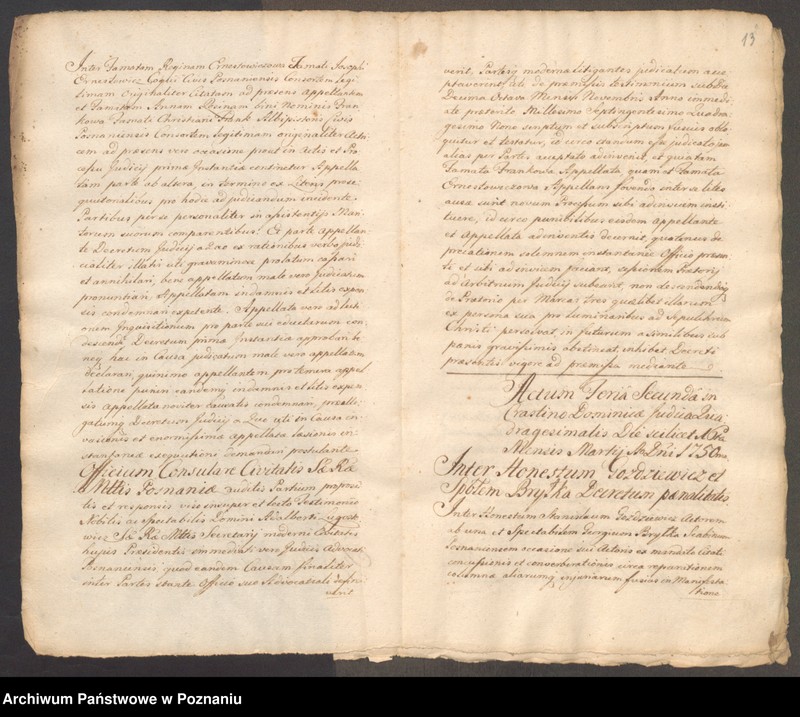 Inter Famatam Reginam Ernestowiczowa Famati Josephi
Ernestewicz Coqui Civis Posnaniensis Consortem legi
timam originaliter Citatam ad præsens Appellantem
et Famatam Annam Rosinam bini Nominis Fran
kowa Famati Christiani Frank Albipistoris Civis
Posnaniensis Consortem legitimam originaliter Actri
cem ad præsens vero occasione prout in Actis et Pro
cessu Judicij primæ Instantiæ continetur Appella
tam parte ab altera, ex termino ex Literis prose
quutionalibus pro hodie ad judicandum incidente
Partibus per se personaliter in assistentijs Man
torum suorum comparentibus. Et parte appellan
te Decretum Judicij a quo ex rationibus verbo judi
cialiter illatis uti gravaminose prolatum cassari
et annihilari, bene appellatum male vero judicatum
pronuntiari, Appellatam in damnis et litis expen
sis condemnari expetente. Appellata vero ad lecti
onem Inquisitionum pro parte sui eductarum con
descendi Decretum primæ Instantiæ approbari be
neq hac in Causa judicatum male vero appellatum
declarari, quinimo appellantem pro temera appel
latione puniri eandemq in damnis et litis expen
sis appellatæ noviter causatis condemnari, præalle
gatumq Decretum Judicij a Quo uti in Causa in
vasionis et enormissimæ appellatæ læsionis in
instantanea exequutioni demandari postulante
Officium Consulare Civitatis Sæ Ræ
Mttis Posnaniæ auditis Partium proposi
tis et responsis visoq insuper et lecto Testimonio
Nobilis ac Spectabilis Domini Adalberti
wicz Sæ Ræ Mttis Secretarij moderni Civitatis
hujus Præsidentis emeriti vero Judicij Advocat
Posnaniensis, quod eandem Causam finaliter
inter Partes stante Officio suo Advocatiali defini
verit
13
verit, Partesq modernæ litigantes judicatum acce
ptaverint, uti de præmissis testimonium sub Da
Decima Octava Mensis Novembris Anno immedi
ate præterito Millesimo Septingentesimo Quadra
gesimo Nono scriptum et subscriptum fusius obl
oquitur et testatur, ideo circa standum esse judicato jam
alias per Partes acceptato adinvenit, et quoniam
Famata Frankowa Appellata, quam et Famata
Ernestowiczowa Appellans fovendo inter se lites
ausæ sunt novum Processum sibi adinvicem insti
tuere, idcirco punibilibus eisdem appellante
et Appellata adinventis decrevit, quatenus de
precationem solemnem instantanee Officio præsen
ti et sibi adinvicem faciant, sessionem Prætorij
ad Arbitrium Judicij subeant, non descendendoq
de Prætorio per Marcas Tres quælibet illarum
ex persona sua pro luminaribus ad Sepulchrum
Christi persolvat, in futurum a similibus sub
pœnis gravissimis abstineat, inhibet, Decreti
præsentis vigore ad præmissa mediante
Actum Feria Secunda in
Crastino Dominicæ Judica Qua
dragesimalis Die scilicet
Mensis Martij Ao Dni 1750mo
Inter Honestum Gozdziewicz et
Spblem Bryłka Decretum pænalitatis
Inter Honestum Stanislaum Gozdziewicz Actorem
ab una et Spectabilem Georgium Bryłka Scabinum
Posnaniensem occasione sui Actoris ex mandato Citati
concussionis et converberationis circa reparationem
columnæ aliarumq injuriarum fusius in Manifesta
tione
Archiwum Państwowe w Poznaniu